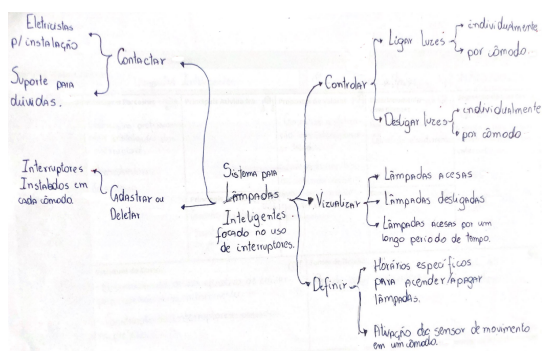 Eletricistas
p/ instalação
Suporte para
dúvidas.
Contactar
Interruptores
Instalados em
cada cômodo.
Cadastrar ou
Deletar
Sistema para
Lâmpadas
Inteligentes.
focado no uso
de interruptores.
Controlar
Ligar luzes
individualmente
por cômodo.
Desligar luzes
individualmente
por cômodo
Vizualizar
Lâmpadas acesas
Lâmpadas desligadas
Lâmpadas acesas por um
longo período de tempo.
Definir
Horários específicos
para acender/apagar
lâmpadas.
Ativação do sensor de movimento
em um cômodo.